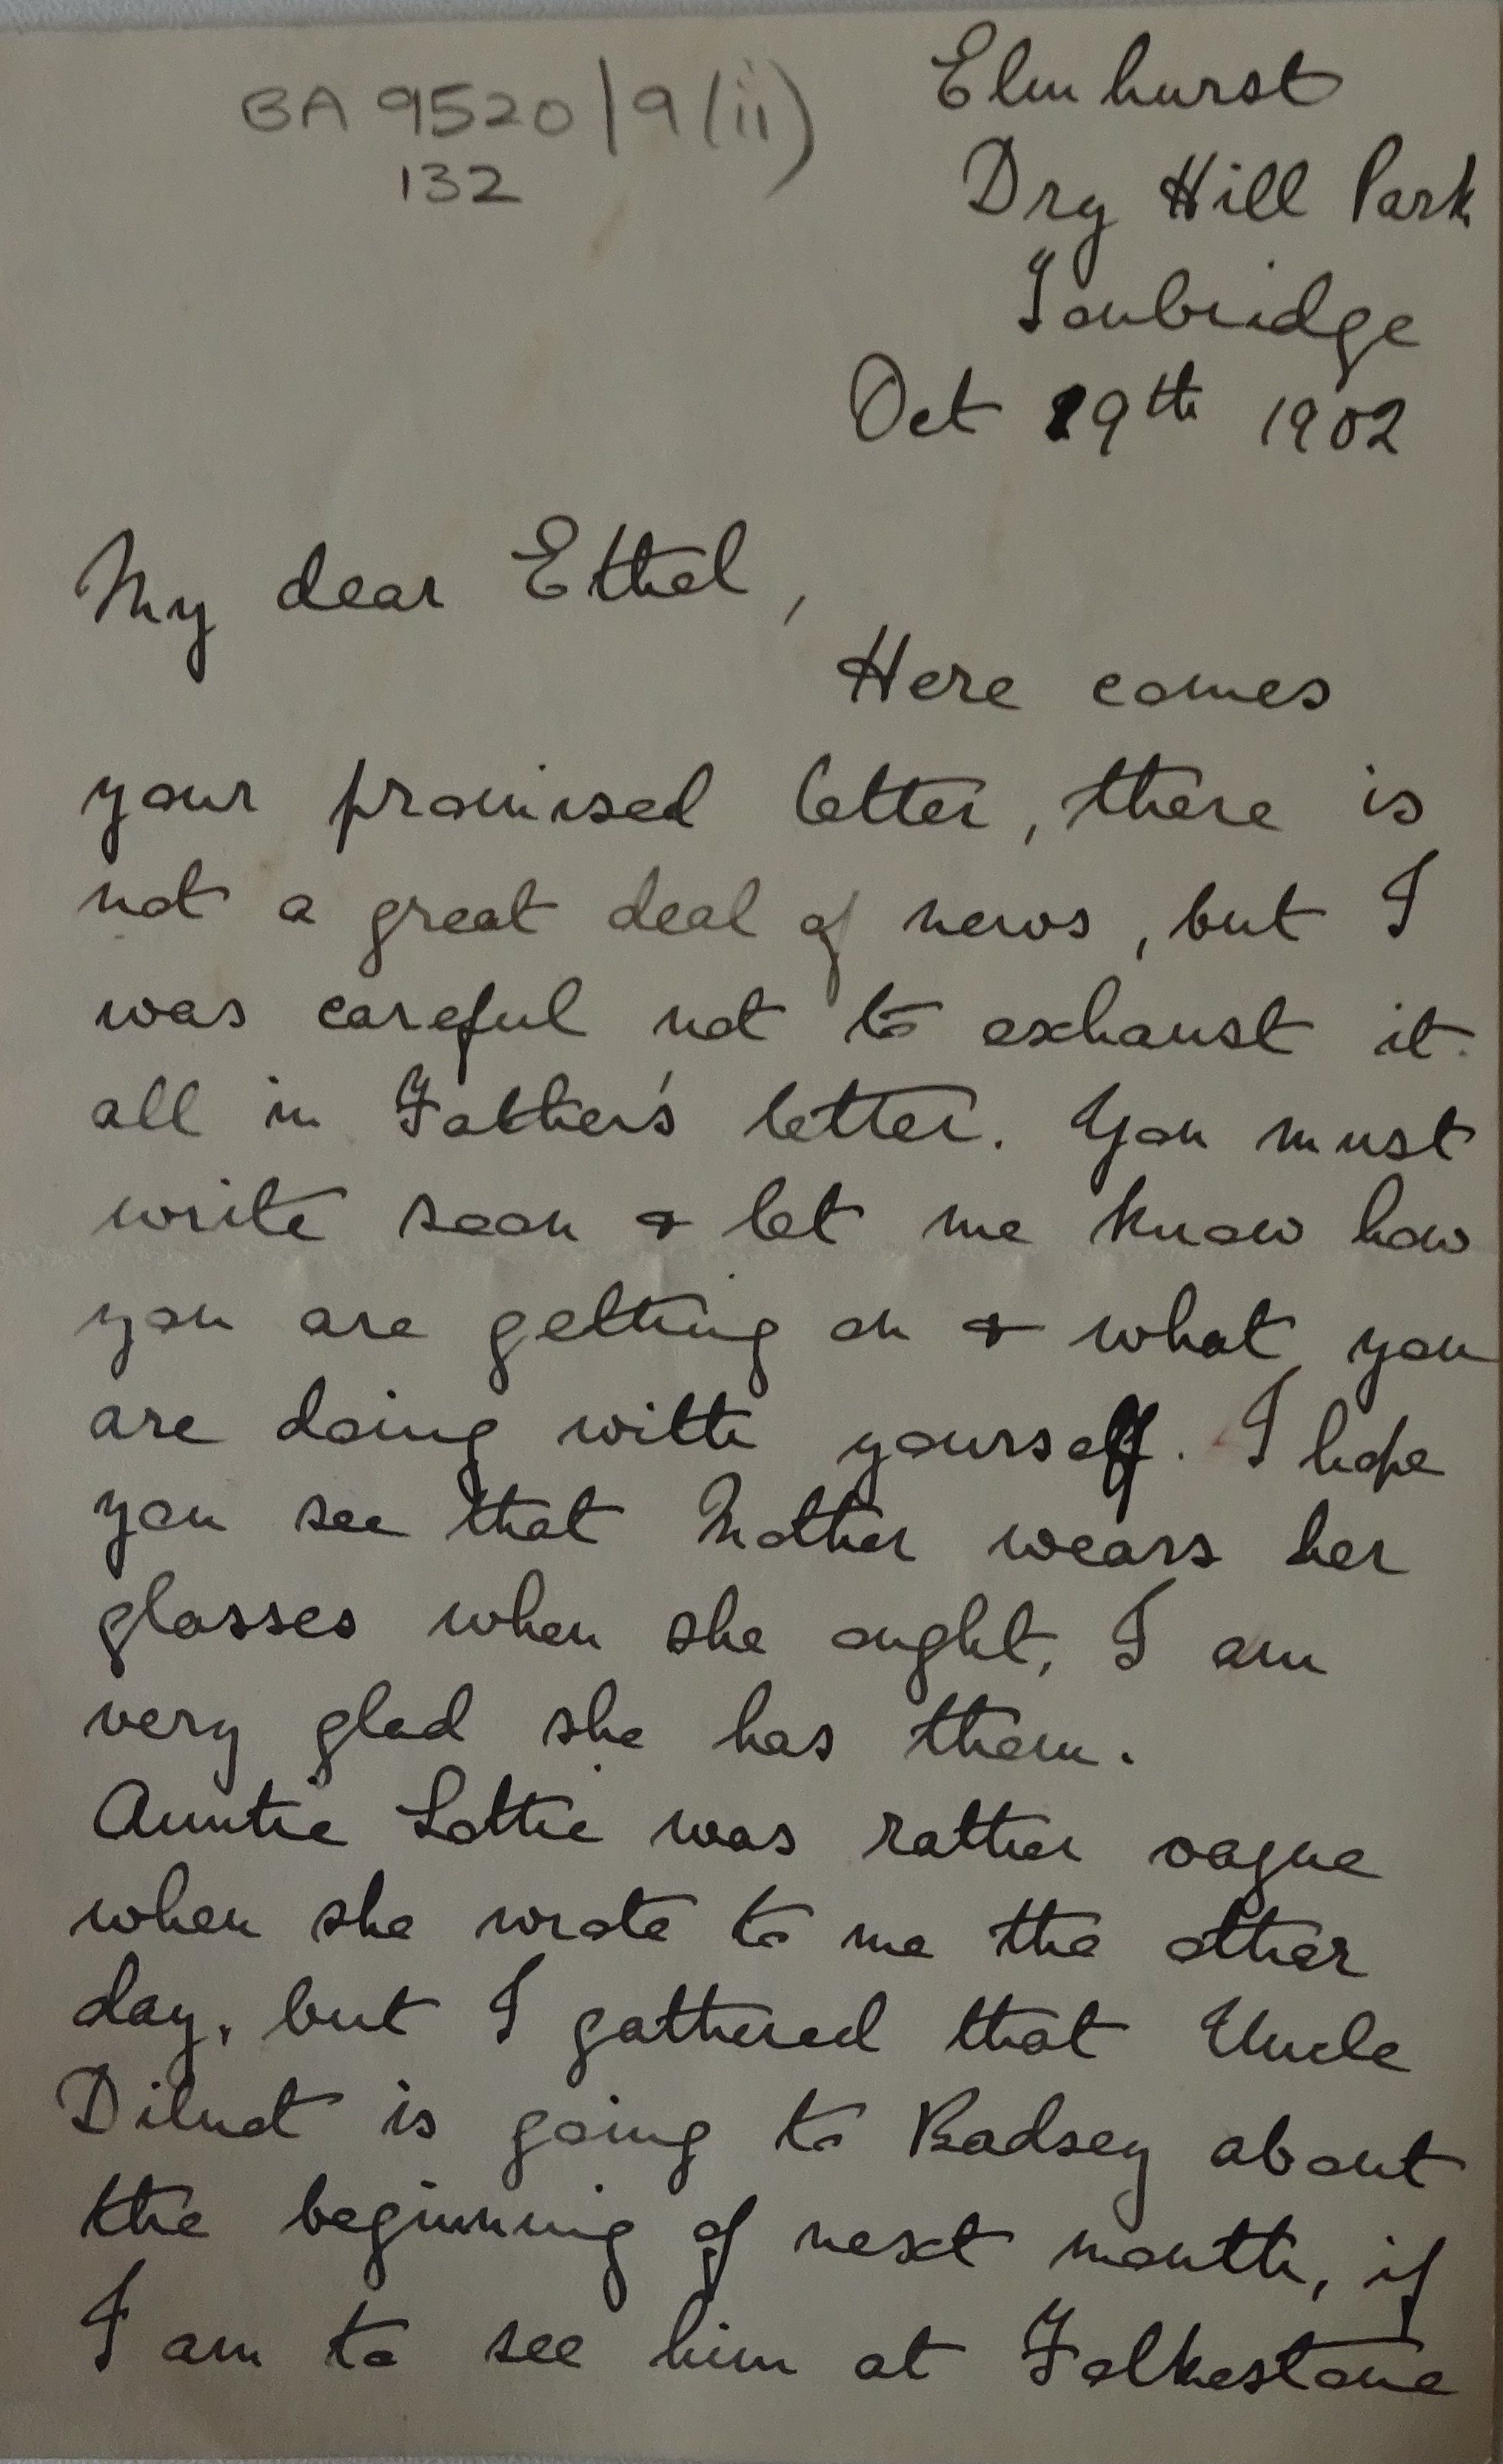 BA 9520/9(ii)
132
Elmhurst
Dry Hill Park
Tonbridge
Oct 19th 1902
My dear Ethel,
Here comes
your promised letter, there is
not a great deal of news, but I
was careful not to exhaust it
all in Father's letter. You must
write soon & let me know how
you are getting on & what you
are doing with yourself. I hope
you see that Mother wears her
glasses when she ought, I am
very glad she has them.
Auntie Lottie was rather vague
when she wrote to me the other
day, but I gathered that Uncle
Dilnot is going to Badsey about
the beginning of next month, if
I am to see him at Folkestone